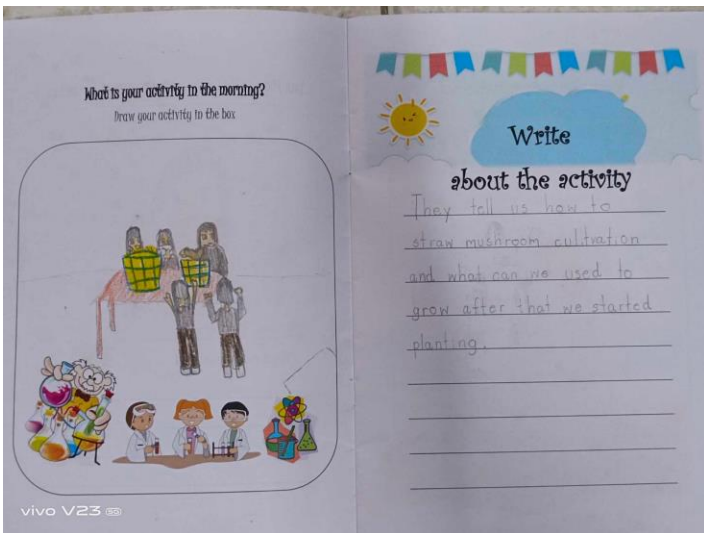 What is your activity in the morning?
Draw your activity in the box
vivo V23 5G
Write
about the activity
They tell us how to
straw mushroom cultivation
and what can we used to
grow after that we started
planting.